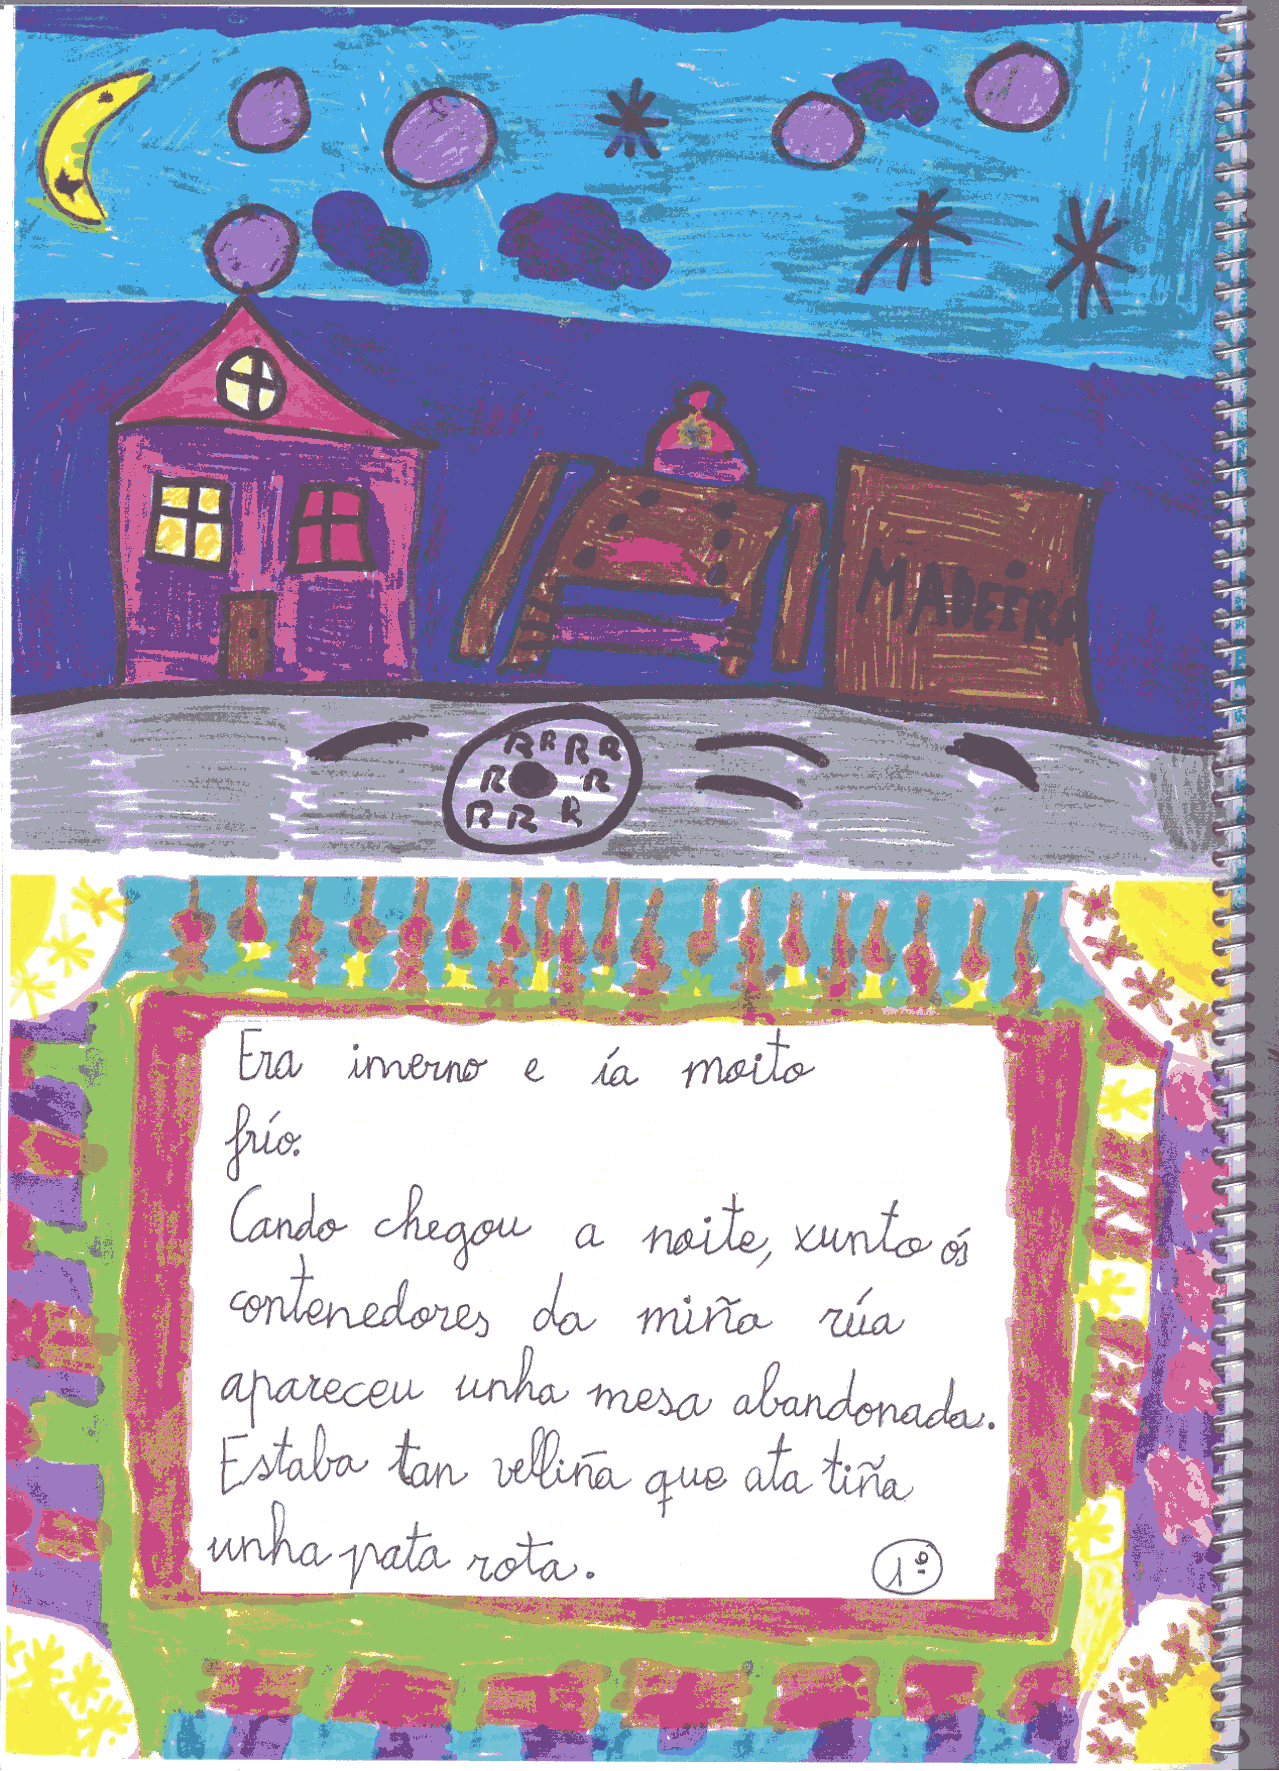 MADEIRA
R R R R
R R
R R R
Era inverno e ía moito
frío.
Cando chegou a noite, xunto ós
contenedores da miña rúa
apareceu unha mesa abandonada.
Estaba tan velliña que ata tiña
unha pata rota.
1º